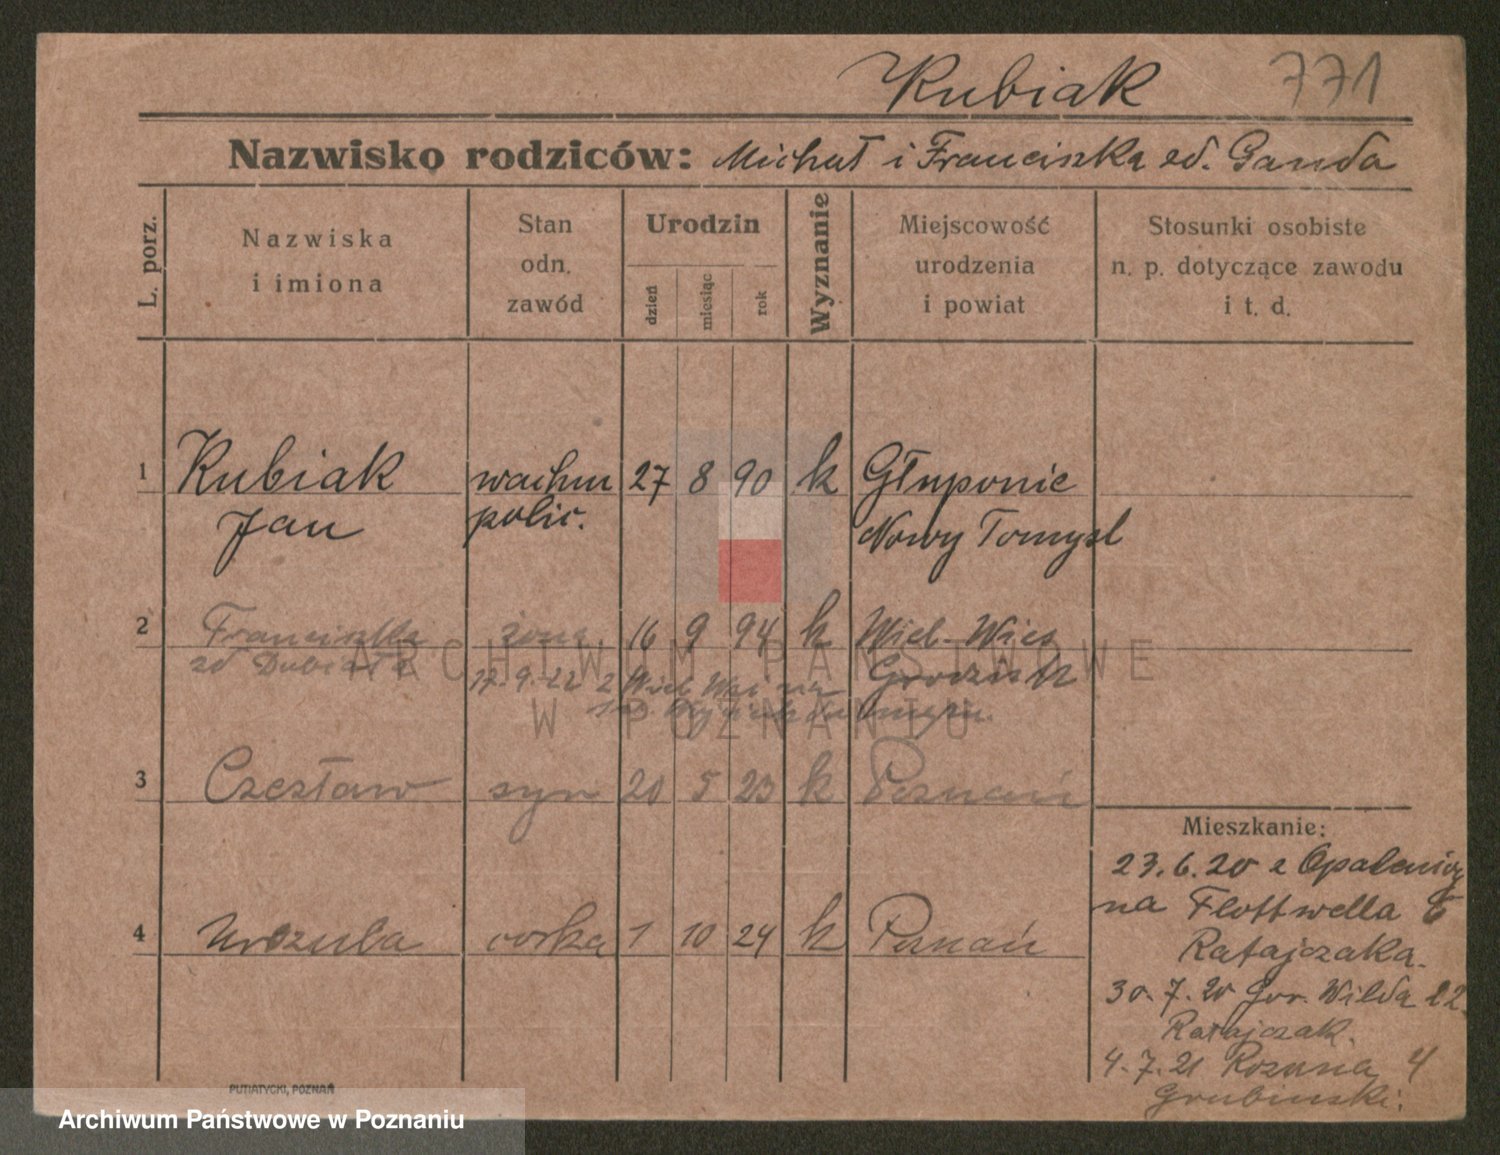 Kubiak 771
Nazwisko rodziców: Michał i Franciszka zd. Ganda
L. porz.
Nazwiska
i imiona
Stan
odn.
zawód
Urodzin
dzień
miesiąc
rok
Wyznanie
Miejscowość
urodzenia
i powiat
Stosunki osobiste
n. p. dotyczące zawodu
i t. d.
1 Kubiak wachm 27 8 90 k Głuponie
Jan polic. Nowy Tomysl
2 Franciszka żona 16 9 94 k Wiel-Wies
zd Dubiała 17.9.22 z Wiel Wsi Grodzisk
3 Czesław syn 20 5 23 k Poznań
4 Urszula corka 1 10 24 k Poznań
Mieszkanie:
23.6.20 z Opalenicy
na Flottwella 6
Ratajczaka.
30.7.20 Gor. Wilda 22.
Ratajczak.
4.7.21 Rozana 4
Grubinski.
PUTIATYCKI, POZNAŃ
ARCHIWUM PAŃSTWOWE
W POZNANIU
Archiwum Państwowe w Poznaniu